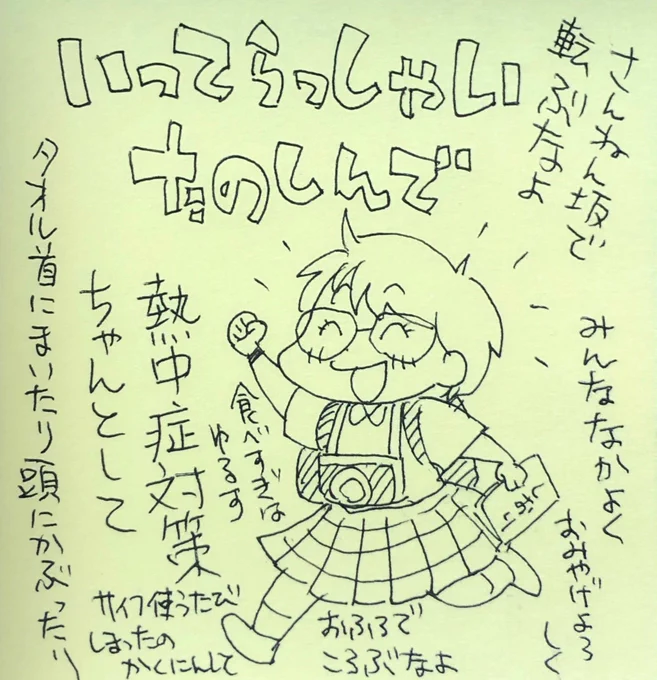 いってらっしゃい
たのしんで
さんねん坂で
転ぶなよ
みんななかよく
おみやげよろしく
食べすぎは
ゆるす
熱中症対策
ちゃんとして
タオル首にまいたり頭にかぶったり
サイフ使うたび
しまったの
かくにんして
おふろで
ころぶなよ